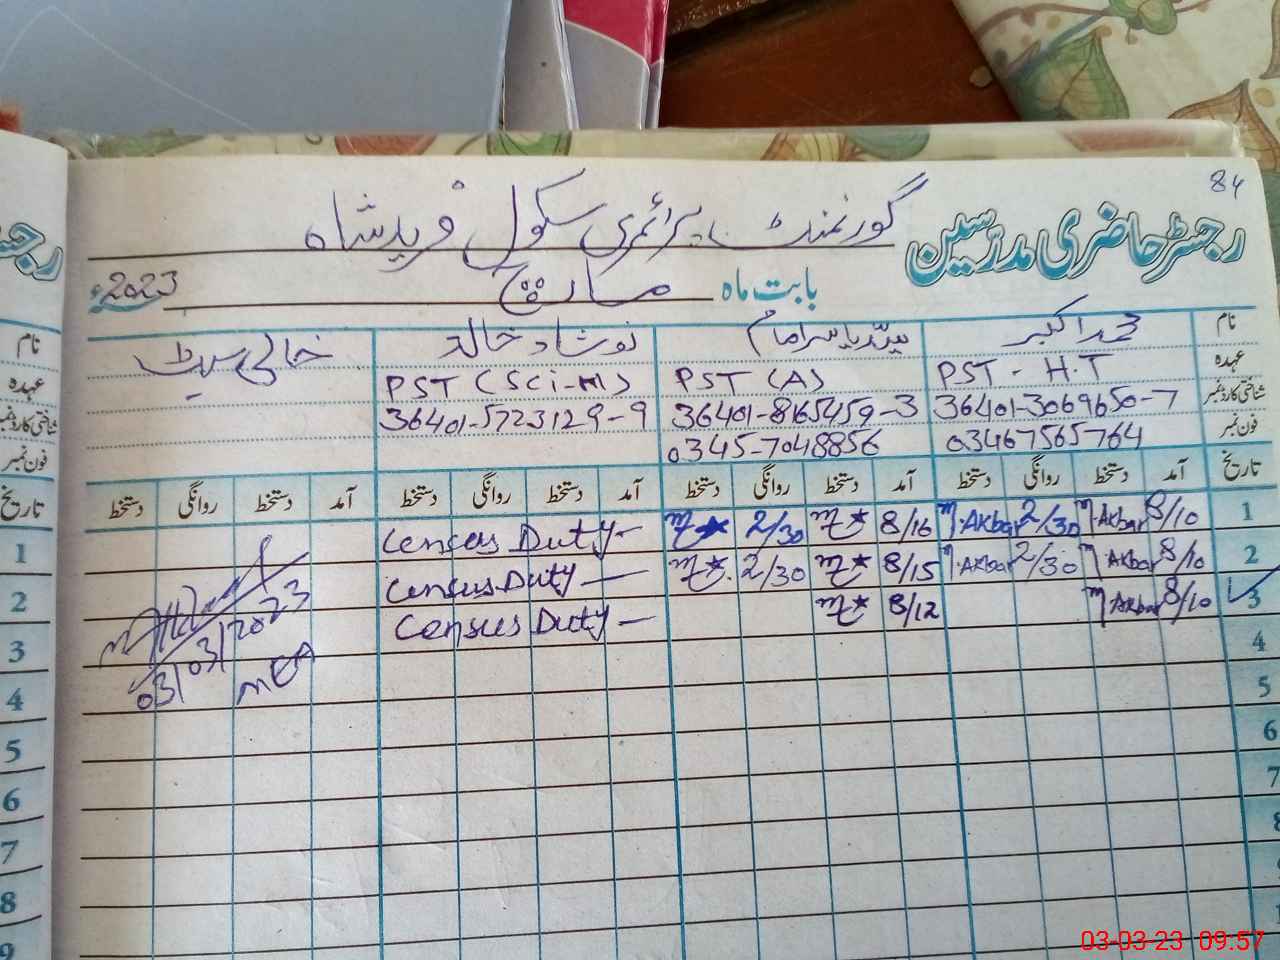 84
رجسٹر حاضری مدرسین گورنمنٹ پرائمری سکول فریدشاہ
بابت ماہ مارچ 2023ء
نام محمد اکبر سید یاسر امام نوشاد خالد خالی سیٹ
عہدہ PST - H.T PST (A) PST (Sci-M)
شناختی کارڈ نمبر 36401-3069650-7 36401-8165459-3 36401-5723129-9
فون نمبر 03467565764 0345-7048856
تاریخ آمد دستخط روانگی دستخط آمد دستخط روانگی دستخط آمد دستخط روانگی دستخط آمد دستخط روانگی دستخط
1 8/10 M.Akbar 2/30 M.Akbar 8/16 2/30 Census Duty-
2 8/10 M.Akbar 2/30 M.Akbar 8/15 2/30 Census Duty —
3 8/10 M.Akbar 8/12 Census Duty —
03/03/2023
MEA
4
5
6
7
8
رجسٹر
نام
عہدہ
شناختی کارڈ نمبر
فون نمبر
تاریخ
1
2
3
4
5
6
7
8
9
03-03-23 09:57